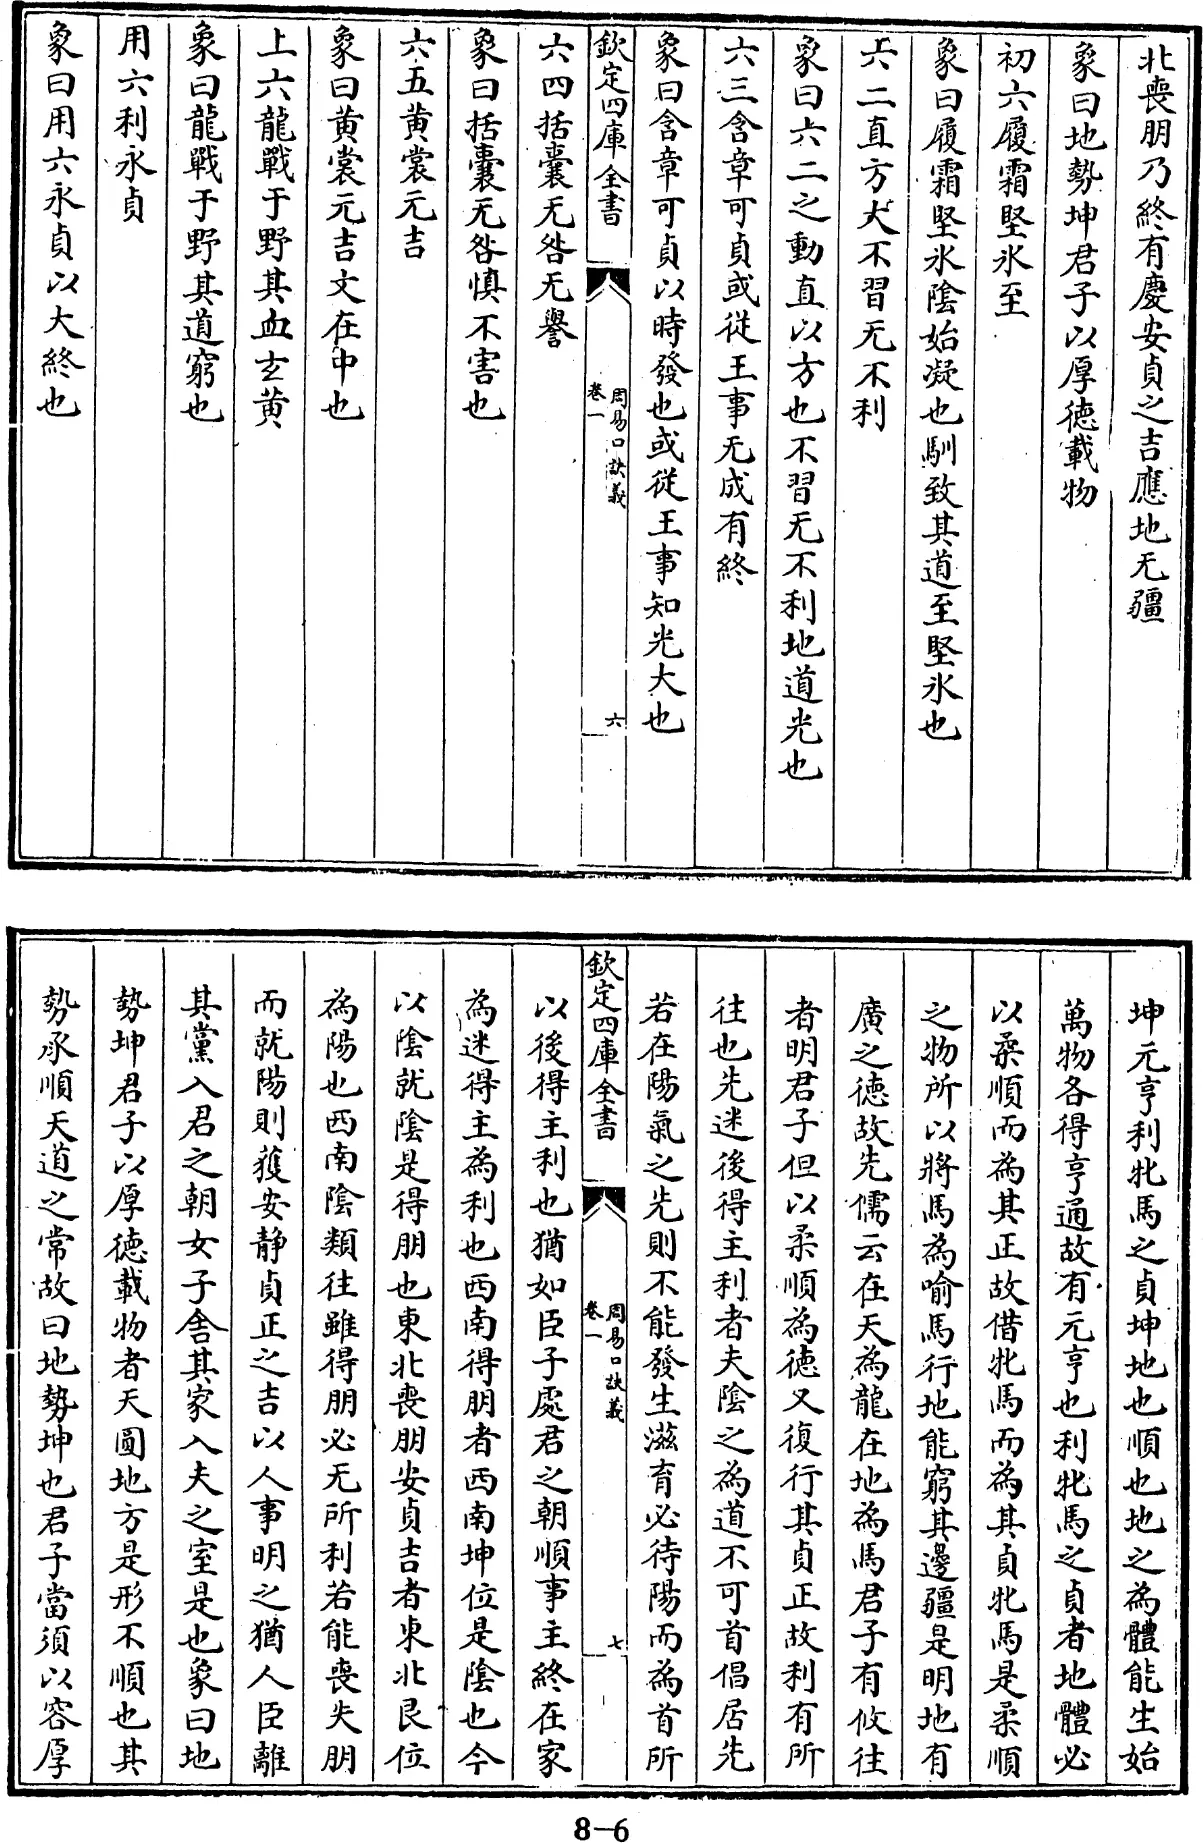 北喪朋乃終有慶安貞之吉應地无疆
象曰地勢坤君子以厚德載物
初六履霜堅氷至
象曰履霜堅氷陰始凝也馴致其道至堅氷也
六二直方大不習无不利
象曰六二之動直以方也不習无不利地道光也
六三含章可貞或從王事无成有終
象曰含章可貞以時發也或從王事知光大也
欽定四庫全書
周易口訣義
卷一
六
六四括囊无咎无譽
象曰括囊无咎慎不害也
六五黄裳元吉
象曰黄裳元吉文在中也
上六龍戰于野其血玄黄
象曰龍戰于野其道窮也
用六利永貞
象曰用六永貞以大終也
坤元亨利牝馬之貞坤地也順也地之為體能生始
萬物各得亨通故有元亨也利牝馬之貞者地體必
以柔順而為其正故借牝馬而為其貞牝馬是柔順
之物所以將馬為喻馬行地能窮其邊疆是明地有
廣之德故先儒云在天為龍在地為馬君子有攸往
者明君子但以柔順為德又復行其貞正故利有所
往也先迷後得主利者夫陰之為道不可首倡居先
若在陽氣之先則不能發生滋育必待陽而為首所
欽定四庫全書
周易口訣義
卷一
七
以後得主利也猶如臣子處君之朝順事主終在家
為迷得主為利也西南得朋者西南坤位是陰也今
以陰就陰是得朋也東北喪朋安貞吉者東北艮位
為陽也西南陰類往雖得朋必无所利若能喪失朋
而就陽則獲安静貞正之吉以人事明之猶人臣離
其黨入君之朝女子舍其家入夫之室是也象曰地
勢坤君子以厚德載物者天圓地方是形不順也其
勢承順天道之常故曰地勢坤也君子當須以容厚
8-6